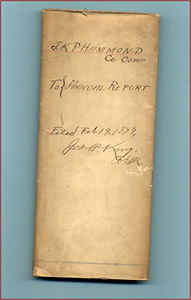 J.K.P. HAMMOND
Co Comr
To} ANNUAL REPORT
Filed Feb 19, 1897,
Jno P. King.
Co Clk